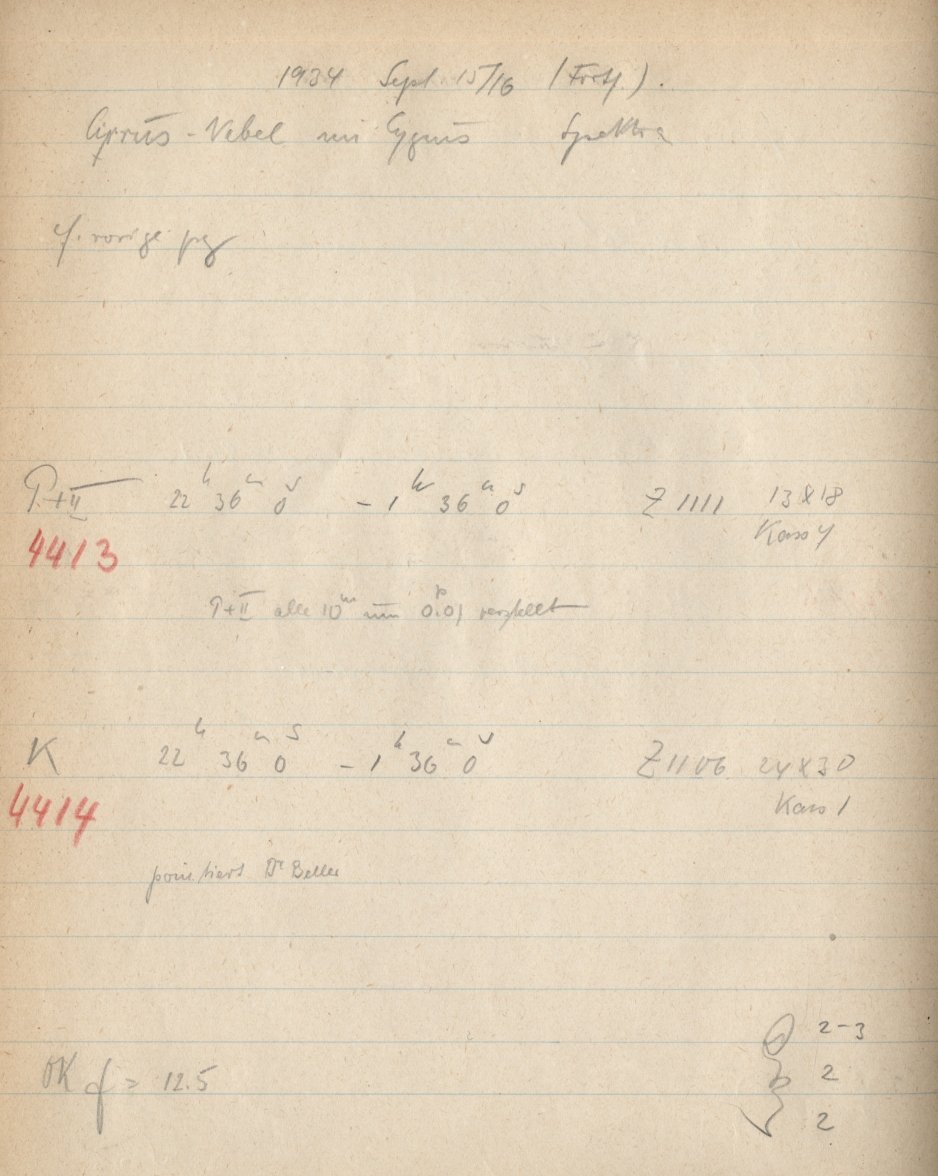 1934 Sept 15/16 (Forts.).
Cirrus-Nebel im Cygnus Spektra
cf. vorige pag
P+II 22h 36m 0s - 1h 36m 0s Z 1111 13x18
4413 Kass 4
P+II alle 10m um 0p.01 verstellt
K 22h 36m 0s - 1h 36m 0s Z 1106 24x30
4414 Kass 1
pointiert Dr Beller
OK f = 12.5
2-3
2
2